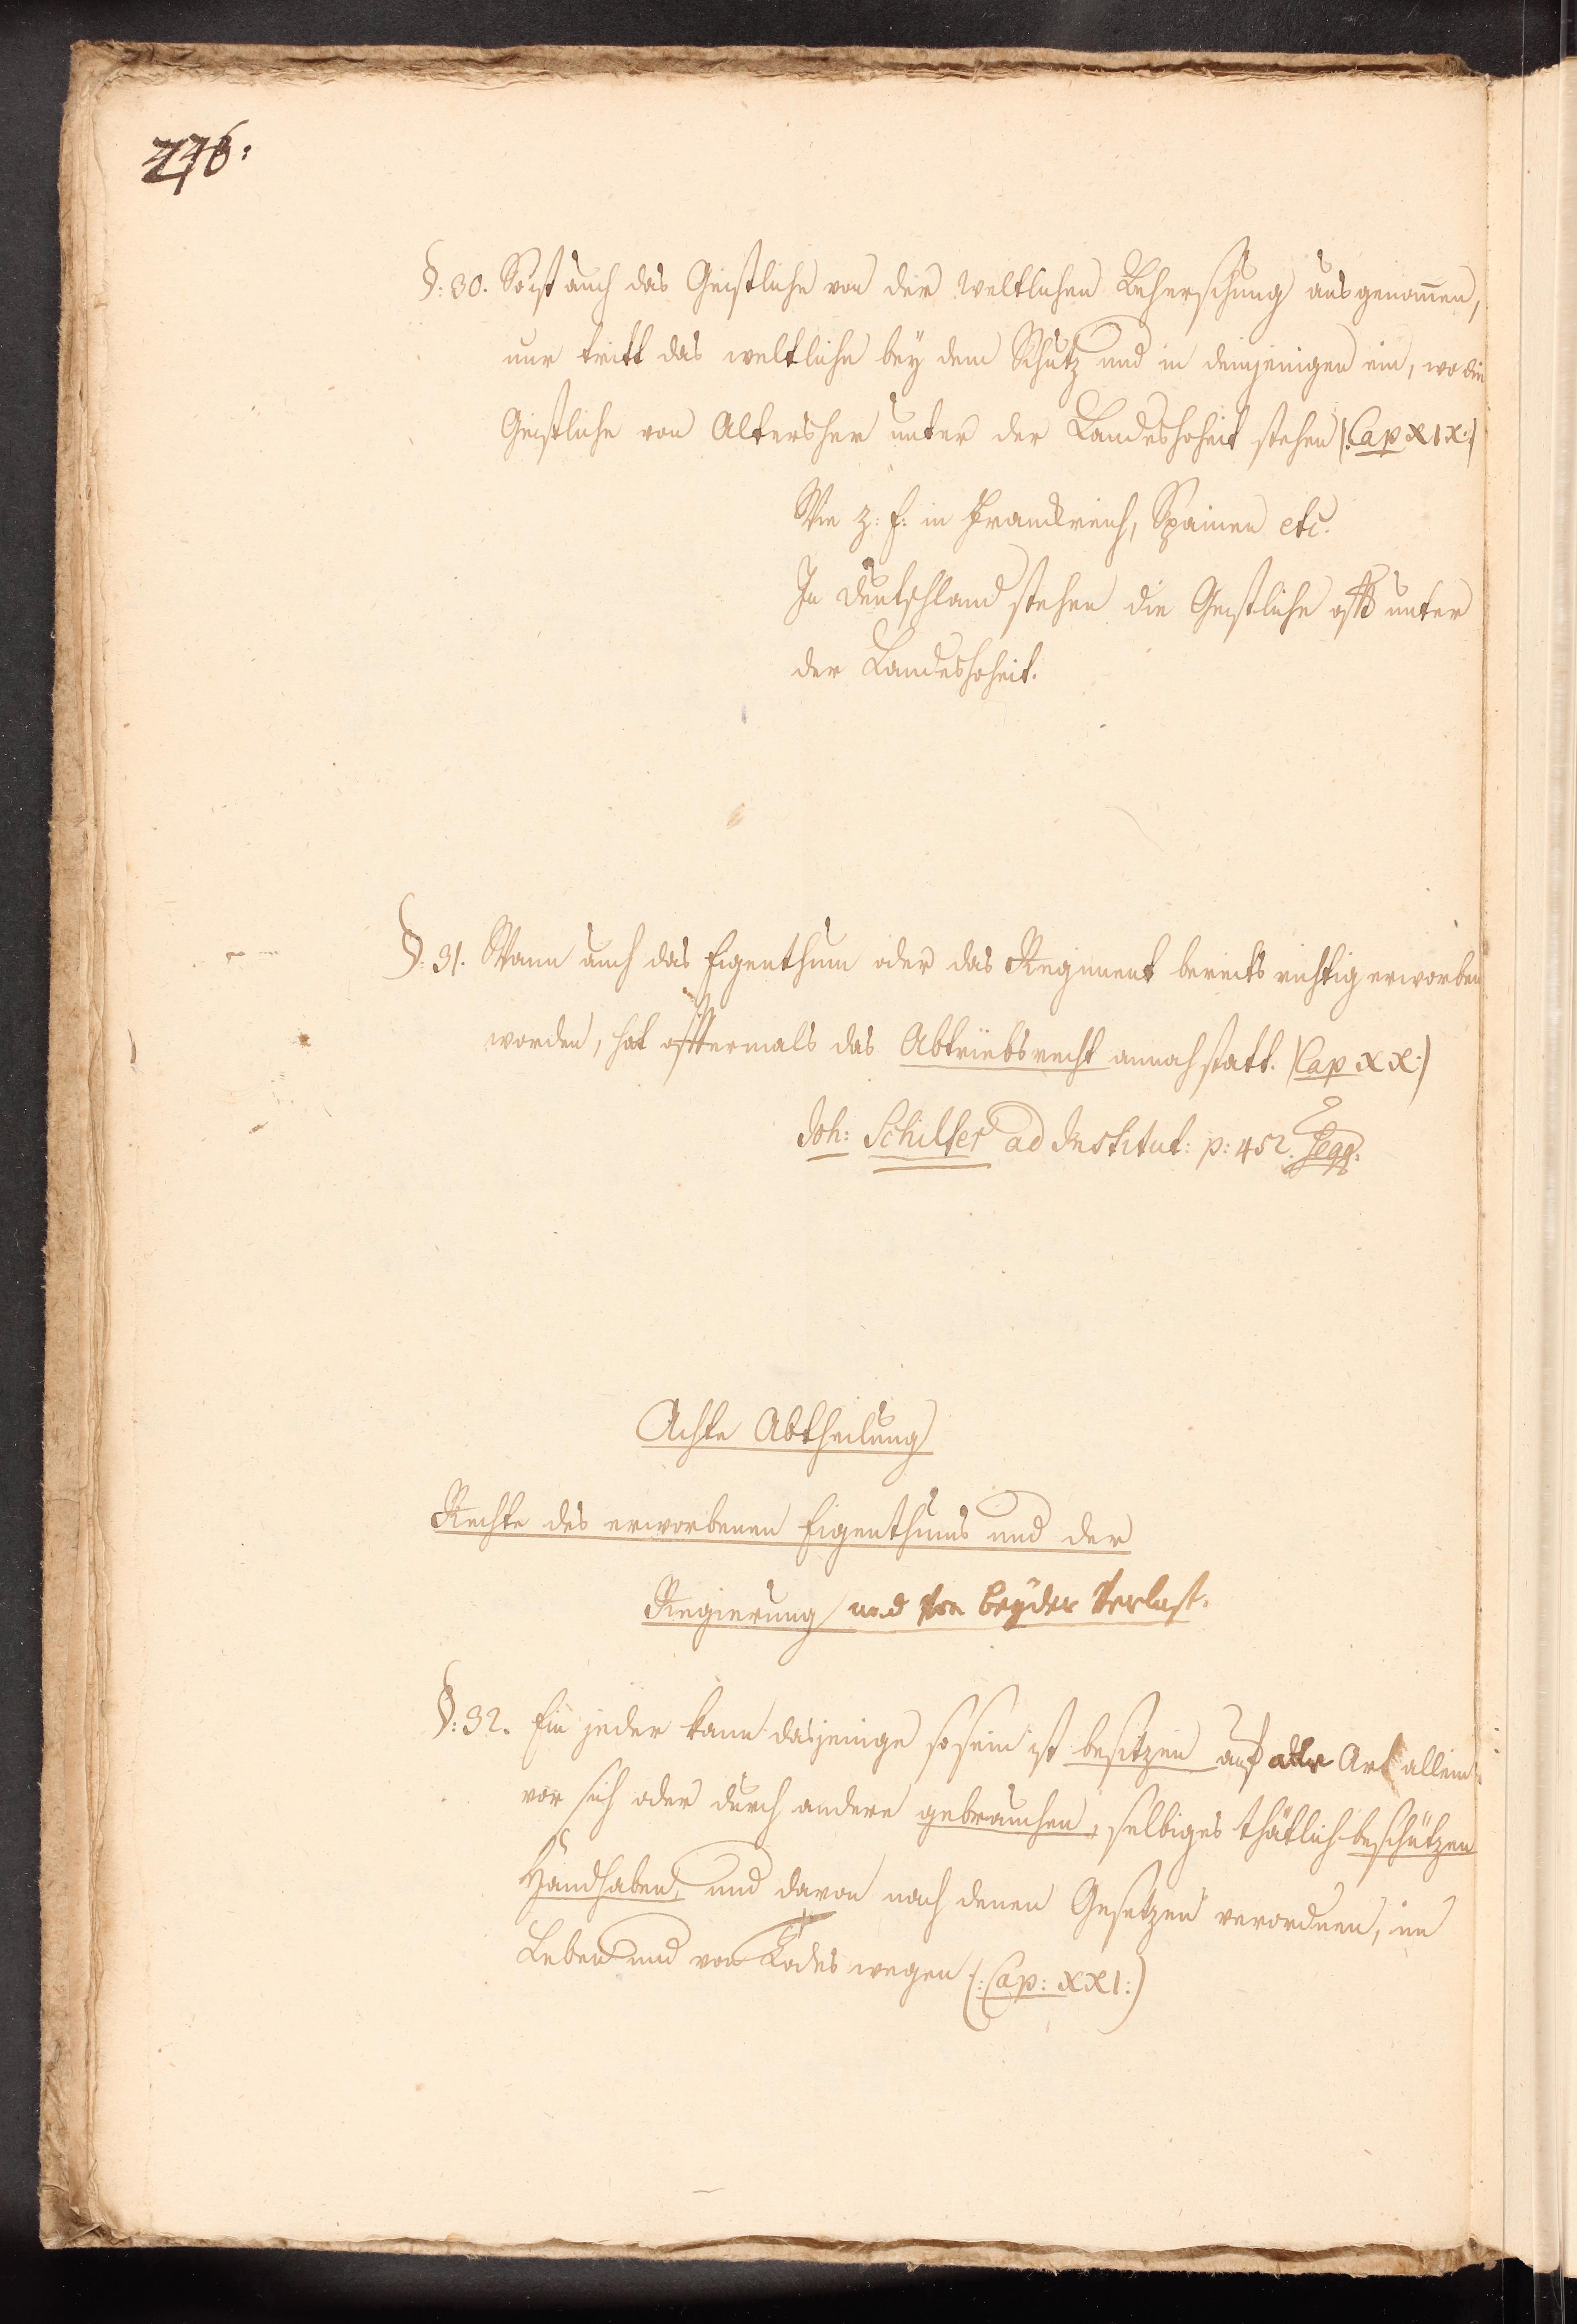 276:
§: 30. So ist auch das Geistliche von der weltlichen Beherschung ausgenomen,
nur tritt das weltliche bey dem Schutz und in demjenigen ein, wo die
Geistliche von Altersher unter der Landeshoheit stehen (: Cap XIX:)
Wie z: E: in Franckreich, Spainen etc.
In deutschland stehen die Geistliche offt unter
der Landeshoheit.
§: 31. Wann auch das Eigenthum oder das Regiment bereits richtig erworben
worden, hat offtermals das Abtriebsrecht annoch statt. (Cap XX:)
Joh: Schilter ad Institut: p: 452. seqq:
Achte Abtheilung
Rechte des erworbenen Eigenthums und der
Regierung und von beyder Verlust.
§: 32. Ein jeder kann dasjenige so sein ist besitzen auf alle Art allein
vor sich oder durch andere gebrauchen, selbiges thätlich beschützen
Handhaben, und davon nach denen Gesetzen verordnen, im
Leben und von Todes wegen (: Cap: XXI:)